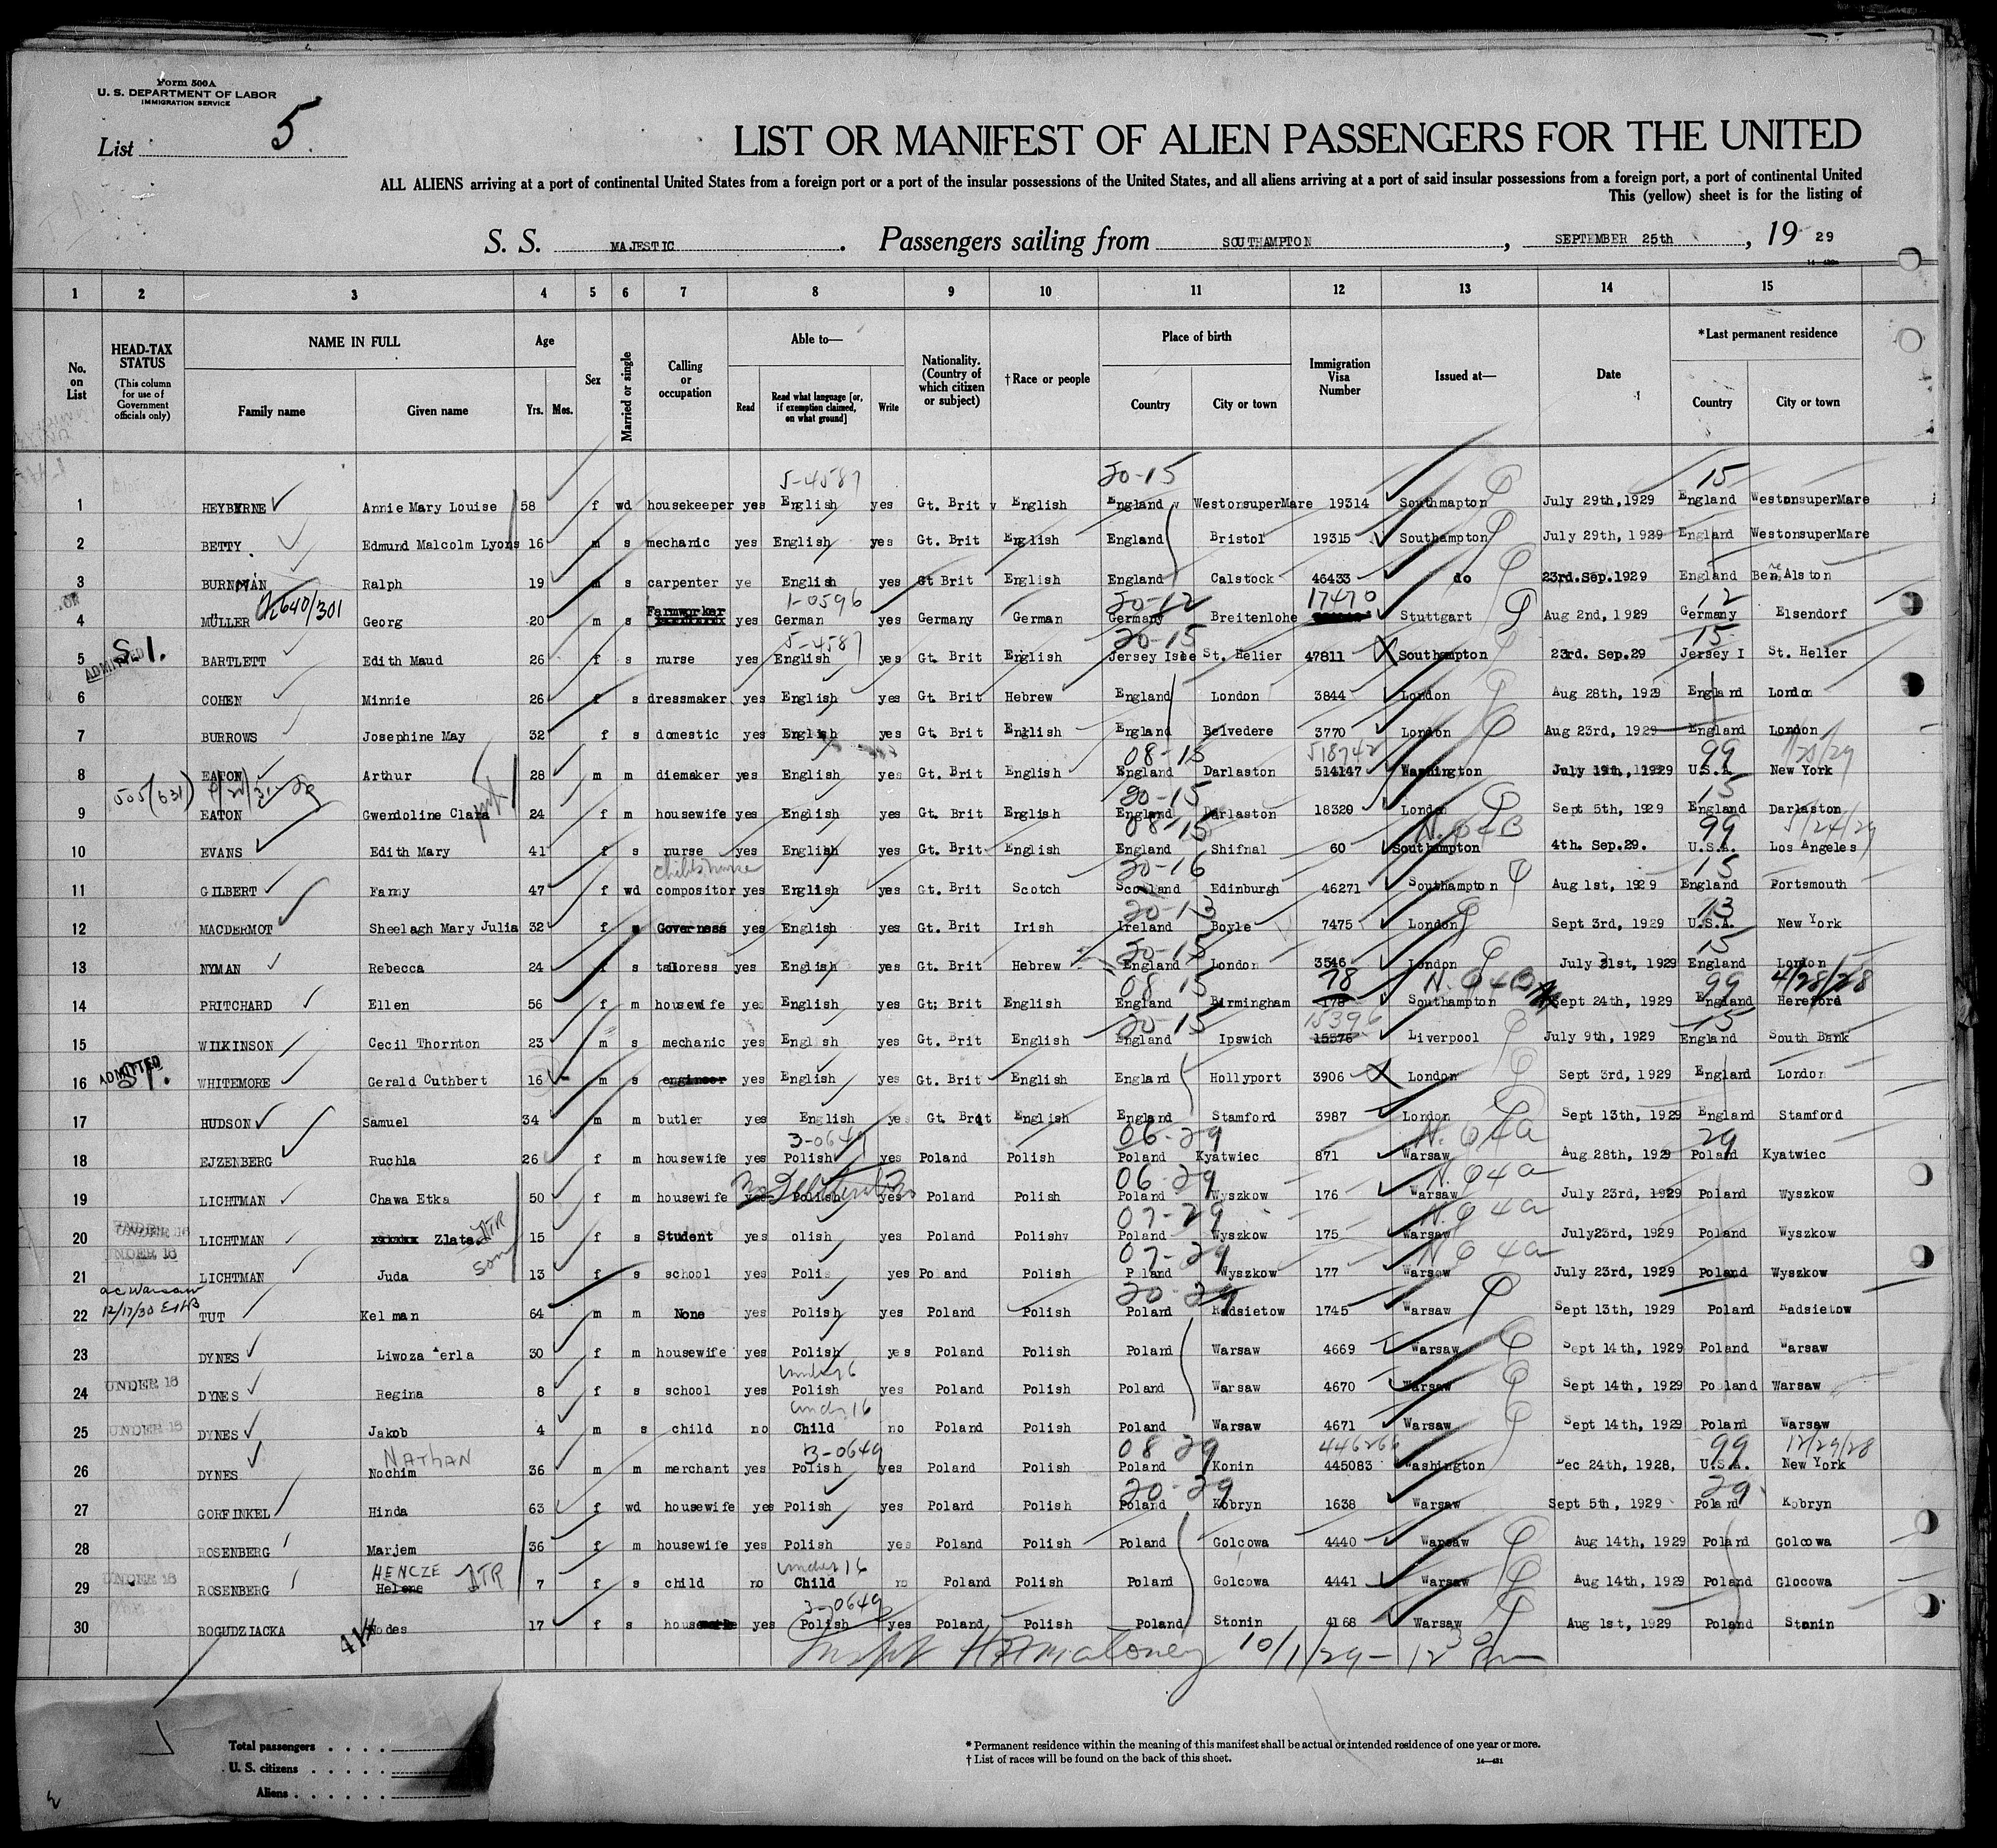 Form 500A
U. S. DEPARTMENT OF LABOR
IMMIGRATION SERVICE
List 5
LIST OR MANIFEST OF ALIEN PASSENGERS FOR THE UNITED
ALL ALIENS arriving at a port of continental United States from a foreign port or a port of the insular possessions of the United States, and all aliens arriving at a port of said insular possessions from a foreign port, a port of continental United
This (yellow) sheet is for the listing of
S. S. MAJESTIC . Passengers sailing from SOUTHAMPTON , SEPTEMBER 25th , 19 29
1 2 3 4 5 6 7 8 9 10 11 12 13 14 15
No. on List
HEAD-TAX STATUS
(This column for use of Government officials only)
NAME IN FULL
Family name Given name
Age
Yrs. Mos.
Sex
Married or single
Calling or occupation
Able to—
Read
Read what language [or, if exemption claimed, on what ground]
Write
Nationality. (Country of which citizen or subject)
† Race or people
Place of birth
Country City or town
Immigration Visa Number
Issued at—
Date
*Last permanent residence
Country City or town
5-4587 20-15 15
1 HEYBYRNE Annie Mary Louise 58 f wd housekeeper yes English yes Gt. Brit English England WestonsuperMare 19314 Southmapton July 29th,1929 England WestonsuperMare
2 BETTY Edmund Malcolm Lyons 16 m s mechanic yes English yes Gt. Brit English England Bristol 19315 Southampton July 29th, 1929 England WestonsuperMare
3 Ralph 19 m s carpenter ye English yes Gt Brit English England Calstock 46433 do 23rd.Sep.1929 England Alston
640/301 1-0596 20-12 17470 12
4 MÜLLER Georg 20 m s Farmworker yes German yes Germany German Germany Breitenlohe Stuttgart Aug 2nd, 1929 Germany Elsendorf
5-4587 20-15 15
5 ADMITTED S.I. BARTLETT Edith Maud 26 f s nurse yes English yes Gt. Brit English Jersey Isle St. Helier 47811 Southampton 23rd. Sep.29 Jersey I St. Helier
6 COHEN Minnie 26 f s dressmaker yes English yes Gt. Brit Hebrew England London 3844 London Aug 28th, 1929 England London
7 BURROWS Josephine May 32 f s domestic yes English yes Gt. Brit English England Belvedere 3770 London Aug 23rd, 1929 England London
08-15 518742 99
8 EATON Arthur 28 m m diemaker yes English yes Gt. Brit English England Darlaston 514147 Washington July 19th, 1929 U.S.A. New York
505(631) 20-15 15
9 EATON Gwendoline Clara 24 f m housewife yes English yes Gt. Brit English England Darlaston 18320 London Sept 5th, 1929 England Darlaston
08-15 N. 04B 99 5/24/29
10 EVANS Edith Mary 41 f s nurse yes English yes Gt. Brit English England Shifnal 60 Southampton 4th. Sep.29. U.S.A. Los Angeles
20-16 15
11 GILBERT Fanny 47 f wd compositor yes English yes Gt. Brit Scotch Scotland Edinburgh 46271 Southampton Aug 1st, 1929 England Portsmouth
20-13 13
12 MACDERMOT Sheelagh Mary Julia 32 f s Governess yes English yes Gt. Brit Irish Ireland Boyle 7475 London Sept 3rd, 1929 U.S.A. New York
20-15 15
13 NYMAN Rebecca 24 f s tailoress yes English yes Gt. Brit Hebrew England London 3546 London July 31st, 1929 England London
08 15 78 N. 04B 99 4/28/28
14 PRITCHARD Ellen 56 f m housewife yes English yes Gt; Brit English England Birmingham 178 Southampton Sept 24th, 1929 England Hereford
20-15 15396 15
15 WILKINSON Cecil Thornton 23 m s mechanic yes English yes Gt. Brit English England Ipswich 15376 Liverpool July 9th, 1929 England South Bank
16 ADMITTED S.I. WHITEMORE Gerald Cuthbert 16 m s engineer yes English yes Gt. Brit English England Hollyport 3906 London Sept 3rd, 1929 England London
17 HUDSON Samuel 34 m m butler yes English yes Gt. Brit English England Stamford 3987 London Sept 13th, 1929 England Stamford
3-0649 06-29 N. 04a 29
18 EJZENBERG Ruchla 26 f m housewife yes Polish yes Poland Polish Poland Kyatwiec 871 Warsaw Aug 28th, 1929 Poland Kyatwiec
06-29 N. 04a
19 LICHTMAN Chawa Etka 50 f m housewife yes Polish yes Poland Polish Poland Wyszkow 176 Warsaw July 23rd, 1929 Poland Wyszkow
07-29 N. 04a
20 UNDER 16 LICHTMAN Zlata DTR 15 f s Student yes olish yes Poland Polish Poland Wyszkow 175 Warsaw July23rd, 1929 Poland Wyszkow
UNDER 16 07-29 N 04a
21 LICHTMAN Juda son 13 f s school yes Polis yes Poland Polish Poland Wyszkow 177 Warsaw July 23rd, 1929 Poland Wyszkow
ac Warsaw 20-29
12/17/30
22 TUT Kelman 64 m m None yes Polish yes Poland Polish Poland Radsietow 1745 Warsaw Sept 13th, 1929 Poland Radsietow
23 DYNES Liwoza erla 30 f m housewife yes Polish yes Poland Polish Poland Warsaw 4669 Warsaw Sept 14th, 1929 Poland Warsaw
under 16
24 UNDER 16 DYNES Regina 8 f s school yes Polish yes Poland Polish Poland Warsaw 4670 Warsaw Sept 14th, 1929 Poland Warsaw
under 16
25 UNDER 16 DYNES Jakob 4 m s child no Child no Poland Polish Poland Warsaw 4671 Warsaw Sept 14th, 1929 Poland Warsaw
NATHAN 3-0649 08-29 446266 99 12/29/28
26 DYNES Nochim 36 m m merchant yes Polish yes Poland Polish Poland Konin 445083 Washington Dec 24th, 1928, U.S.A. New York
20-29 29
27 GORFINKEL Hinda 63 f wd housewife yes Polish yes Poland Polish Poland Kobryn 1638 Warsaw Sept 5th, 1929 Poland Kobryn
28 ROSENBERG Marjem 36 f m housewife yes Polish yes Poland Polish Poland Golcowa 4440 Warsaw Aug 14th, 1929 Poland Golcowa
HENCZE DTR under 16
29 UNDER 16 ROSENBERG Helene 7 f s child no Child no Poland Polish Poland Golcowa 4441 Warsaw Aug 14th, 1929 Poland Glocowa
3-0649
30 BOGUDZIACKA Nodes 17 f s yes Polish yes Poland Polish Poland Stonin 4168 Warsaw Aug 1st, 1929 Poland Stonin
Maloney 10/1/29 – 12 30 Pm
Total passengers . . . .
U. S. citizens . . . . .
Aliens . . . . . .
* Permanent residence within the meaning of this manifest shall be actual or intended residence of one year or more.
† List of races will be found on the back of this sheet.
14—431